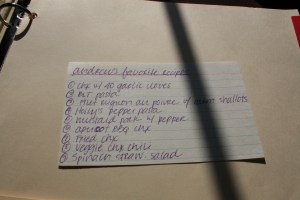 andrew's favorite recipes
① chx w/ 40 garlic cloves
② BLT pasta
③ filet mignon au poivre w/ shallots
④ pepper pasta
⑤ mustard pork w/ pepper
⑥ apricot bbq chx
⑦ fried chx
⑧ veggie chx chili
⑨ spinach straw. salad